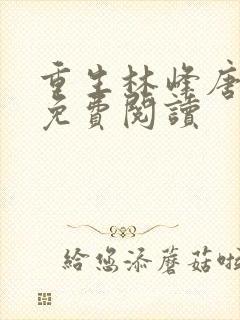 重生林峰唐
免費閱讀
給您添蘑菇啦